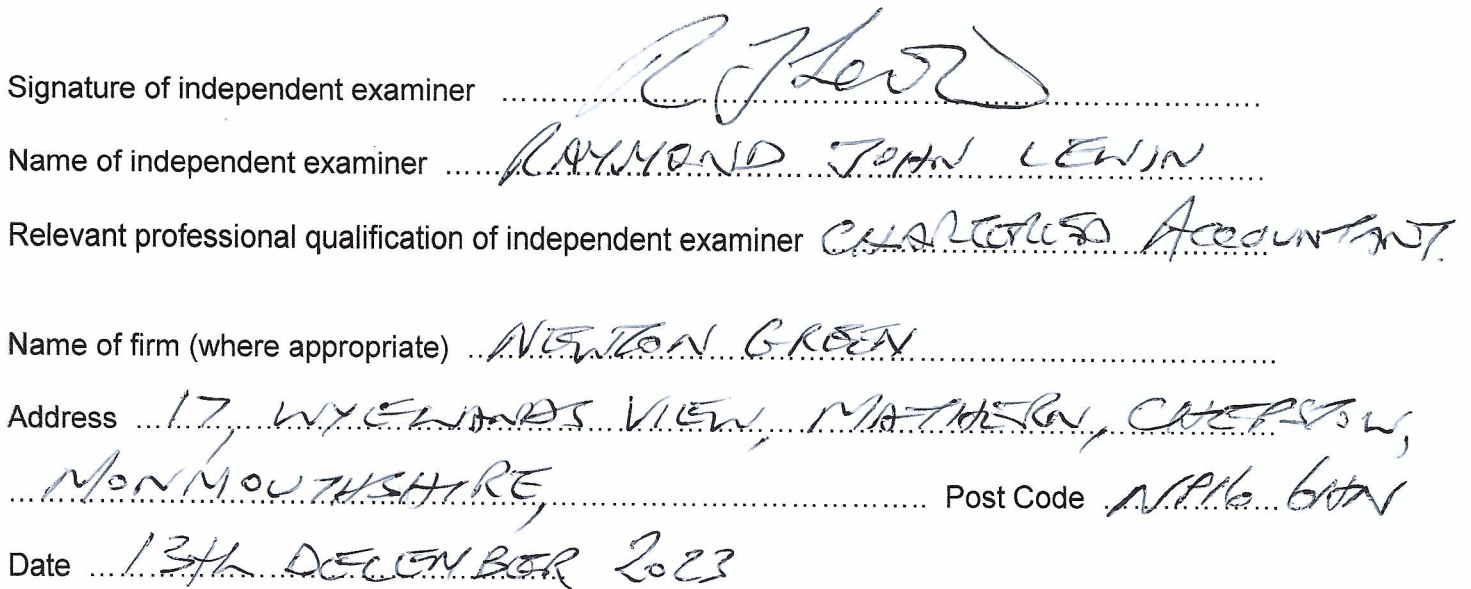 Signature of independent examiner R J Lewin
Name of independent examiner RAYMOND JOHN LEWIN
Relevant professional qualification of independent examiner CHARTERED ACCOUNTANT.
Name of firm (where appropriate) NEWTON GREEN
Address 17, VIEW, MATHERN, CHEPSTOW,
MONMOUTHSHIRE, Post Code NP16 6HN
Date 13th DECEMBER 2023